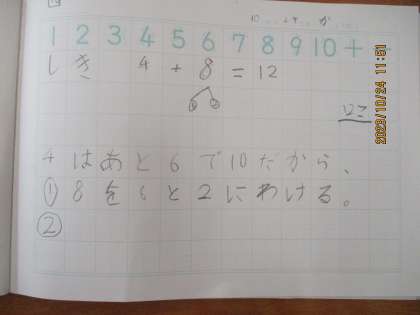 1 2 3 4 5 6 7 8 9 10 +
しき 4 + 8 = 12
12こ
4はあと6で10だから、
① 8を6と2にわける。
②
2023/10/24 11:51